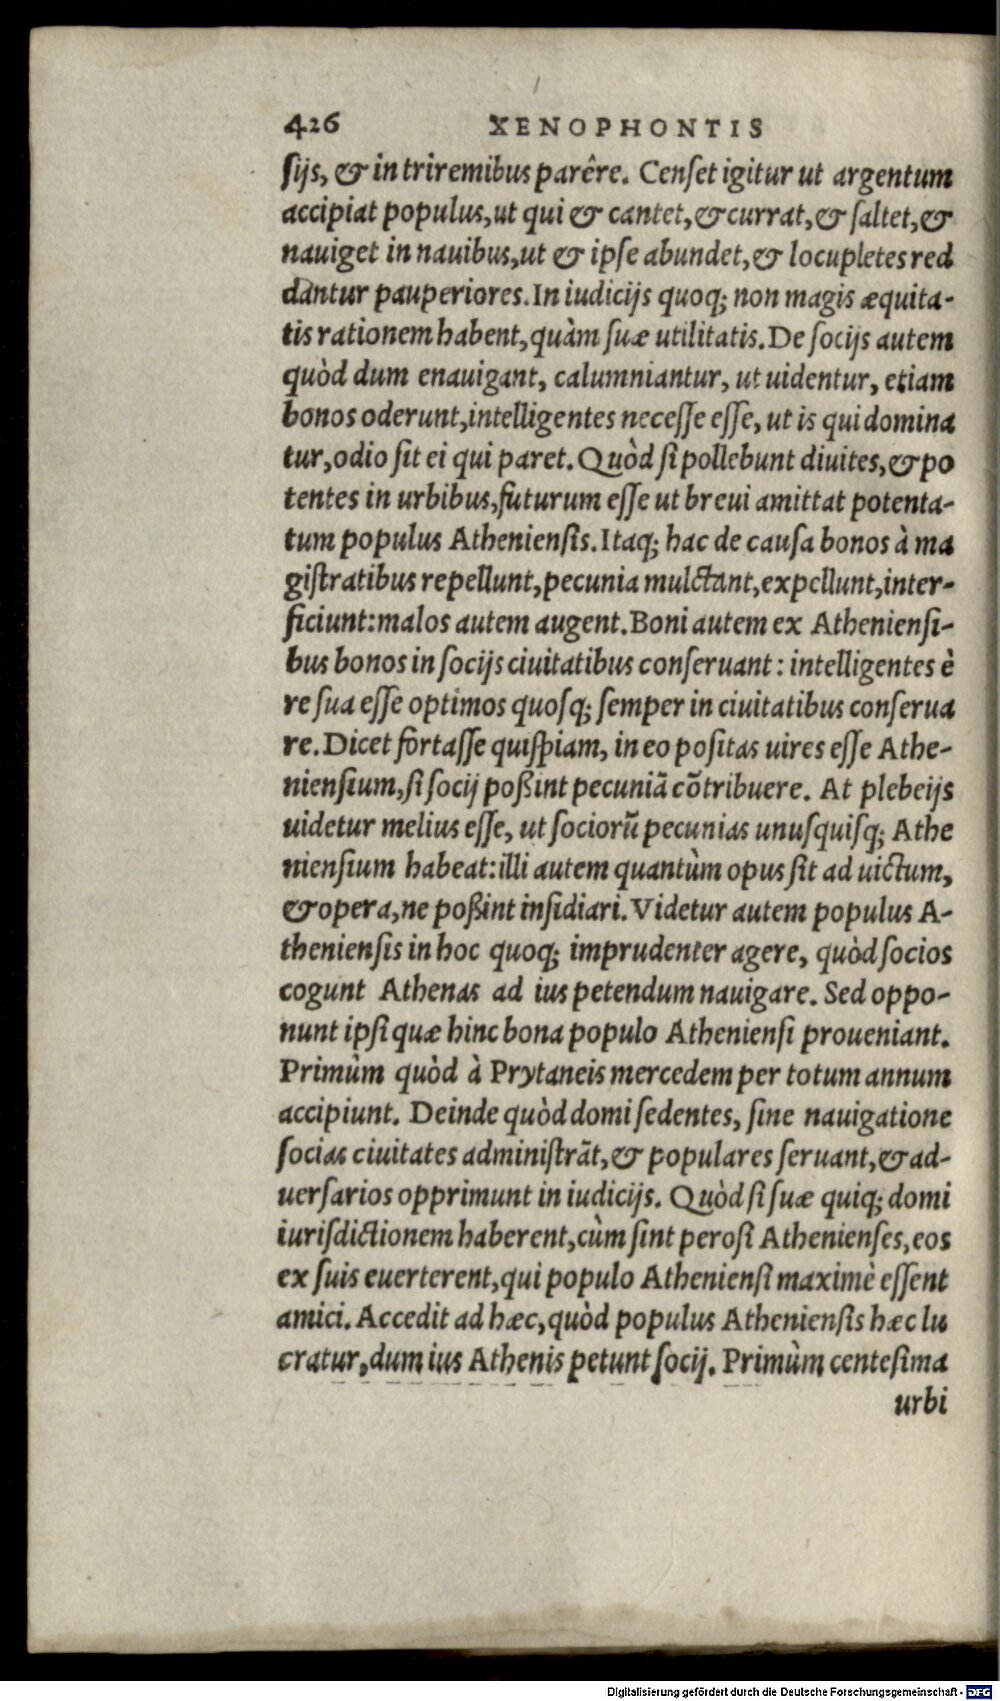 426 XENOPHONTIS
sijs, & in triremibus parêre. Censet igitur ut argentum
accipiat populus, ut qui & cantet, & currat, & saltet, &
nauiget in nauibus, ut & ipse abundet, & locupletes red
dantur pauperiores. In iudicijs quoq; non magis æquita-
tis rationem habent, quàm suæ utilitatis. De socijs autem
quòd dum enauigant, calumniantur, ut uidentur, etiam
bonos oderunt, intelligentes necesse esse, ut is qui domina
tur, odio sit ei qui paret. Quòd si pollebunt diuites, & po
tentes in urbibus, futurum esse ut breui amittat potenta-
tum populus Atheniensis. Itaq; hac de causa bonos à ma
gistratibus repellunt, pecunia mulctant, expellunt, inter-
ficiunt: malos autem augent. Boni autem ex Atheniensi-
bus bonos in socijs ciuitatibus conseruant: intelligentes è
re sua esse optimos quosq; semper in ciuitatibus conserua
re. Dicet fortasse quispiam, in eo positas uires esse Athe-
niensium, si socij poßint pecuniā cōtribuere. At plebeijs
uidetur melius esse, ut sociorū pecunias unusquisq; Athe
niensium habeat: illi autem quantùm opus sit ad uictum,
& opera, ne poßint insidiari. Videtur autem populus A-
theniensis in hoc quoq; imprudenter agere, quòd socios
cogunt Athenas ad ius petendum nauigare. Sed oppo-
nunt ipsi quæ hinc bona populo Atheniensi proueniant.
Primùm quòd à Prytaneis mercedem per totum annum
accipiunt. Deinde quòd domi sedentes, sine nauigatione
socias ciuitates administrāt, & populares seruant, & ad-
uersarios opprimunt in iudicijs. Quòd si suæ quiq; domi
iurisdictionem haberent, cùm sint perosi Athenienses, eos
ex suis euerterent, qui populo Atheniensi maximè essent
amici. Accedit ad hæc, quòd populus Atheniensis hæc lu
cratur, dum ius Athenis petunt socij. Primùm centesima
urbi
Digitalisierung gefördert durch die Deutsche Forschungsgemeinschaft - DFG